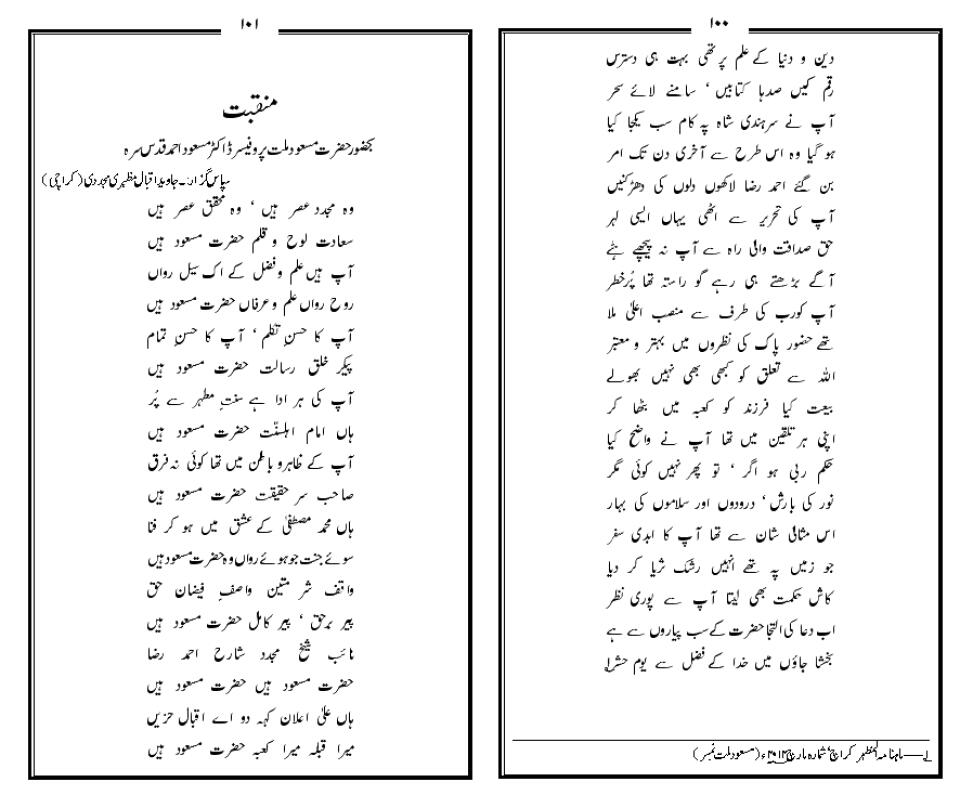 ۱۰۰
دین و دنیا کے علم پر تھی بہت ہی دسترس
رقم کیں صدہا کتابیں ‘ سامنے لائے سحر
آپ نے سرہندی شاہ پہ کام سب یکجا کیا
ہو گیا وہ اس طرح سے آخری دن تک امر
بن گئے احمد رضا لاکھوں دلوں کی دھڑکنیں
آپ کی تحریر سے اٹھی یہاں ایسی لہر
حق صداقت والی راہ سے آپ نہ پیچھے ہٹے
آگے بڑھتے ہی رہے گو راستہ تھا پُرخطر
آپ کو رب کی طرف سے منصب اعلیٰ ملا
تھے حضور پاک کی نظروں میں بہتر و معتبر
اللہ سے تعلق کو کبھی بھی نہیں بھولے
بیعت کیا فرزند کو کعبہ میں بٹھا کر
اپنی ہر تلقین میں تھا آپ نے واضح کیا
حکم ربی ہو اگر ‘ تو پھر نہیں کوئی مگر
نور کی بارش ‘ درودوں اور سلاموں کی بہار
اس مثالی شان سے تھا آپ کا ابدی سفر
جو زمیں پہ تھے انہیں رشک ثریا کر دیا
کاش حکمت بھی لیتا آپ سے پوری نظر
اب دعا کی التجا حضرت کے سب پیاروں سے ہے
بخشا جاؤں میں خدا کے فضل سے یوم حشر۱
۱۔۔۔ماہنامہ المظہر کراچی‘ شمارہ مارچ ۲۰۱۴ء (مسعود ملت نمبر)
۱۰۱
منقبت
بحضور حضرت مسعود ملت پروفیسر ڈاکٹر مسعود احمد قدس سرہ
سپاس گزار۔ جاوید اقبال مظہری مجددی (کراچی)
وہ مجدد عصر ہیں ‘ وہ محقق عصر ہیں
سعادت لوح و قلم حضرت مسعود ہیں
آپ ہیں علم و فضل کے اک سیل رواں
روح رواں علم و عرفاں حضرت مسعود ہیں
آپ کا حسنِ تکلم ‘ آپ کا حسنِ تمام
پیکر خلق رسالت حضرت مسعود ہیں
آپ کی ہر ادا ہے سنتِ مطہر سے پُر
ہاں امام اہلسنّت حضرت مسعود ہیں
آپ کے ظاہر و باطن میں تھا کوئی نہ فرق
صاحب سر حقیقت حضرت مسعود ہیں
ہاں محمد مصطفیٰ کے عشق میں ہو کر فنا
سوئے جنت جو ہوئے رواں وہ حضرت مسعود ہیں
واقف شر متین واصفِ فیضان حق
پیر برحق ‘ پیر کامل حضرت مسعود ہیں
نائب شیخ مجدد شارح احمد رضا
حضرت مسعود ہیں حضرت مسعود ہیں
ہاں علیٰ اعلان کہہ دو اے اقبال حزیں
میرا قبلہ میرا کعبہ حضرت مسعود ہیں